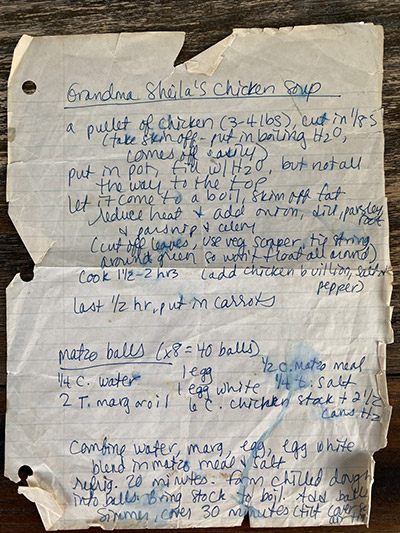 Grandma Sheila's Chicken Soup
a pullet of chicken (3-4 lbs), cut in 1/8s
(take skin off - put in boiling H2O,
comes off easily)
put in pot, fill w/ H2O, but not all
the way to the top
let it come to a boil, skim off fat
reduce heat & add onion, dill, parsley
root
& parsnip & celery
(cut off leaves, use veg scraper, tie string
around green so won't float all around)
cook 1 1/2-2 hrs (add chicken bouillion, salt &
pepper)
last 1/2 hr, put in carrots
matzo balls (x8 = 40 balls)
1/4 c. water 1 egg 1/2 c. matzo meal
1 egg white 1/4 t. salt
2 T. marg or oil 6 c. chicken stak + 2 1/2
cans H2O
Combine water, marg, egg, egg white
blend in matzo meal & salt
refrig. 20 minutes. form chilled dough
into balls. Bring stock to boil. Add balls
Simmer, cover 30 minutes (tilt cover